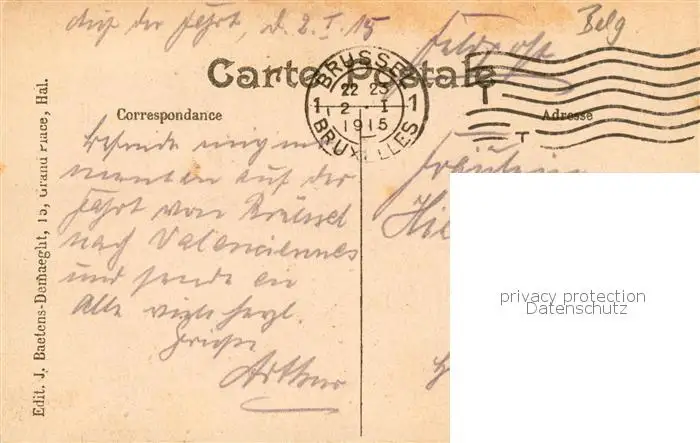 Auf der Fahrt, d. 2. I. 15
Belg
Feldpost
Carte Postale
BRUSSEL
22 23
1 2 · I 1
1915
BRUXELLES
T
T
Correspondance
Adresse
Befinde mich mo-
mentan auf der
Fahrt von Brüssel
nach Valenciennes
und sende an
Alle viele herzl.
Grüße
Arthur
Fräulein
Hil
Edit. J. Baetens-Demaeght, 15, Grand Place, Hal.
privacy protection
Datenschutz